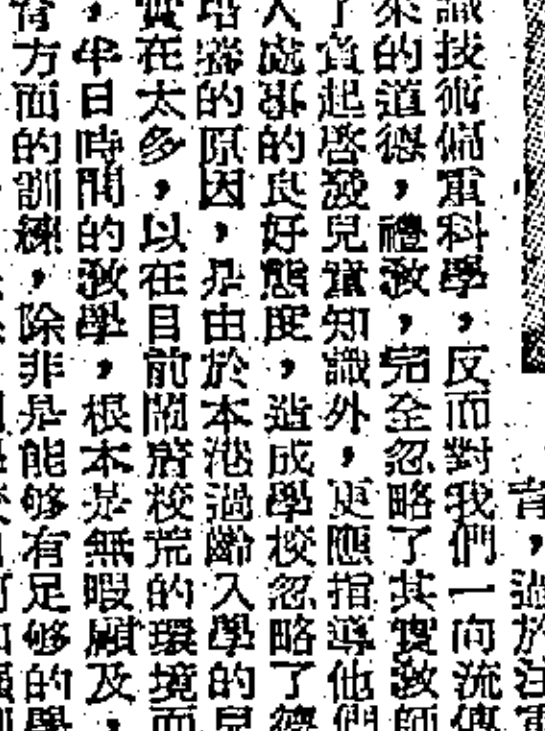 育，過於注重
識技術偏重科學，反而對我們一向流傳
來的道德，禮教，完全忽略了其實教師
了負起啓發兒童知識外，更應指導他們
人處事的良好態度，造成學校忽略了德
培器的原因，是由於本港過齡入學的兒
實在太多，以在目前鬧着校荒的環境而
，半日時間的教學，根本是無暇顧及，
育方面的訓練，除非是能够有足够的學